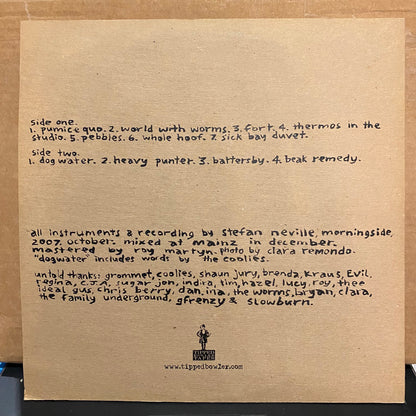 side one.
1. pumice quo. 2. world with worms. 3. fort. 4. thermos in the
studio. 5. pebbles. 6. whole hoof. 7. sick bay duvet.
side two.
1. dog water. 2. heavy punter. 3. battersby. 4. beak remedy.
all instruments & recording by stefan neville, morningside,
2007. october. mixed at mainz in december.
mastered by roy martyn. photo by clara remondo.
"dogwater" includes words by the coolies.
untold thanks: grommet, coolies, shaun jury, brenda, kraus, evil,
regina, c.j.a, sugar jon, indira, tim, hazel, lucy, roy, thee
ideal gus, chris berry, dan, ina, the worms, bryan, clara,
the family underground, gfrenzy & slowburn.
TIPPED
BOWLER
www.tippedbowler.com